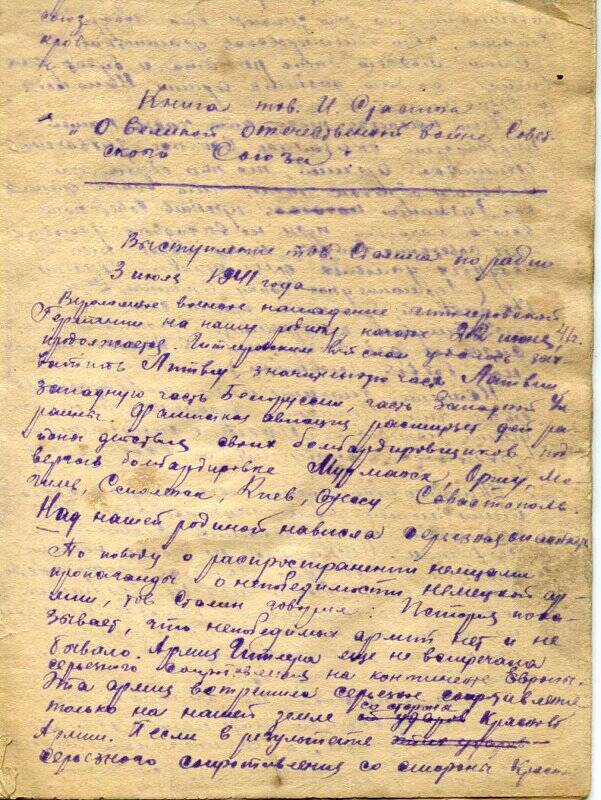 союз
Книга тов. И Сталина
"О великой отечественной войне Совет-
ского Союза"
Выступление тов. Сталина по радио
3 июля 1941 года
Вероломное военное нападение гитлеровской
Германии на нашу родину, начатое 22 июня,
продолжается. Гитлеровским войскам удалось зах-
ватить Литву, значительную часть Латвии
западную часть Белоруссии, часть Западной Ук
раины. Фашистская авиация расширяет дей ра
йоны действия своих бомбардировщиков, под-
вергая бомбардировке Мурманск, Оршу, Мо-
гилев, Смоленск, Киев, Одессу, Севастополь.
Над нашей родиной нависла серьезная опасность
По поводу о распространении немцами
пропаганды о непобедимости немецкой ар-
мии, тов Сталин говорил: История пока-
зывает, что непобедимых армий нет и не
бывало. Армия Гитлера еще не встречала
серьезного сопротивления на континенте Европы.
Эта армия встретила серьезное сопротивление
только на нашей земле со стороны Красной
Армии. И если в результате
серьезного сопротивления со стороны Красн